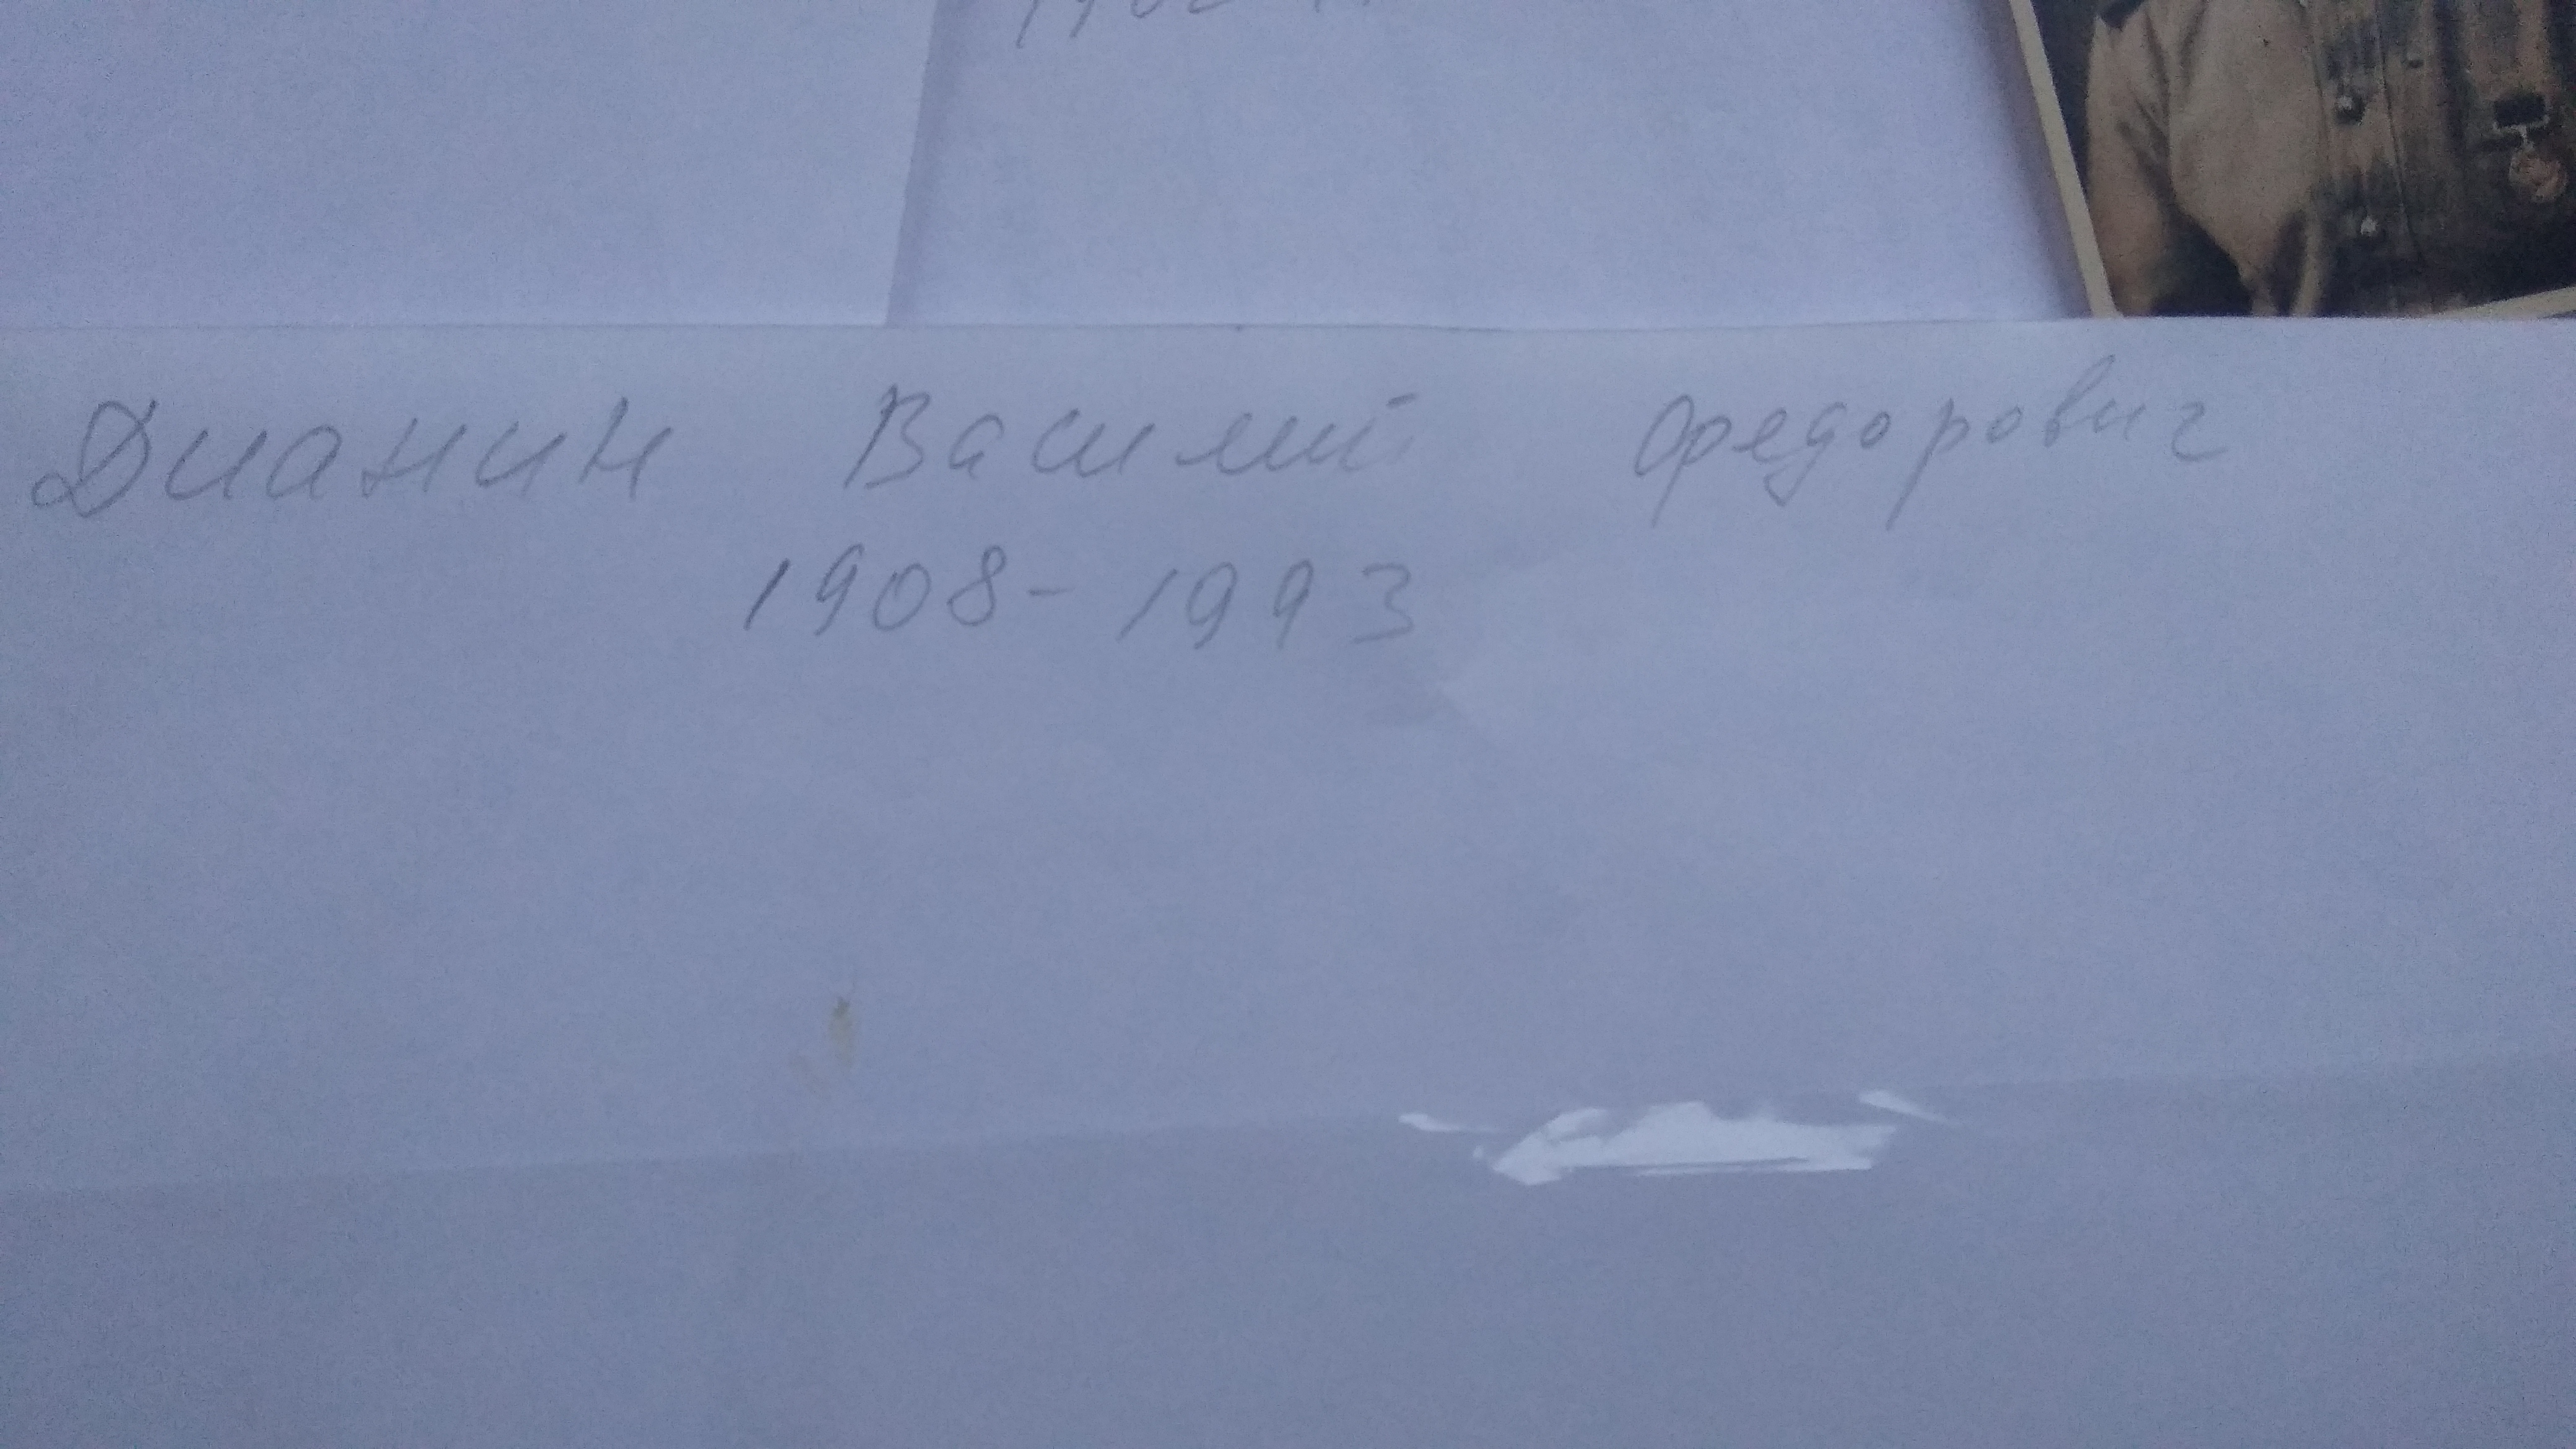 Дианин Василий Федорович
1908-1993